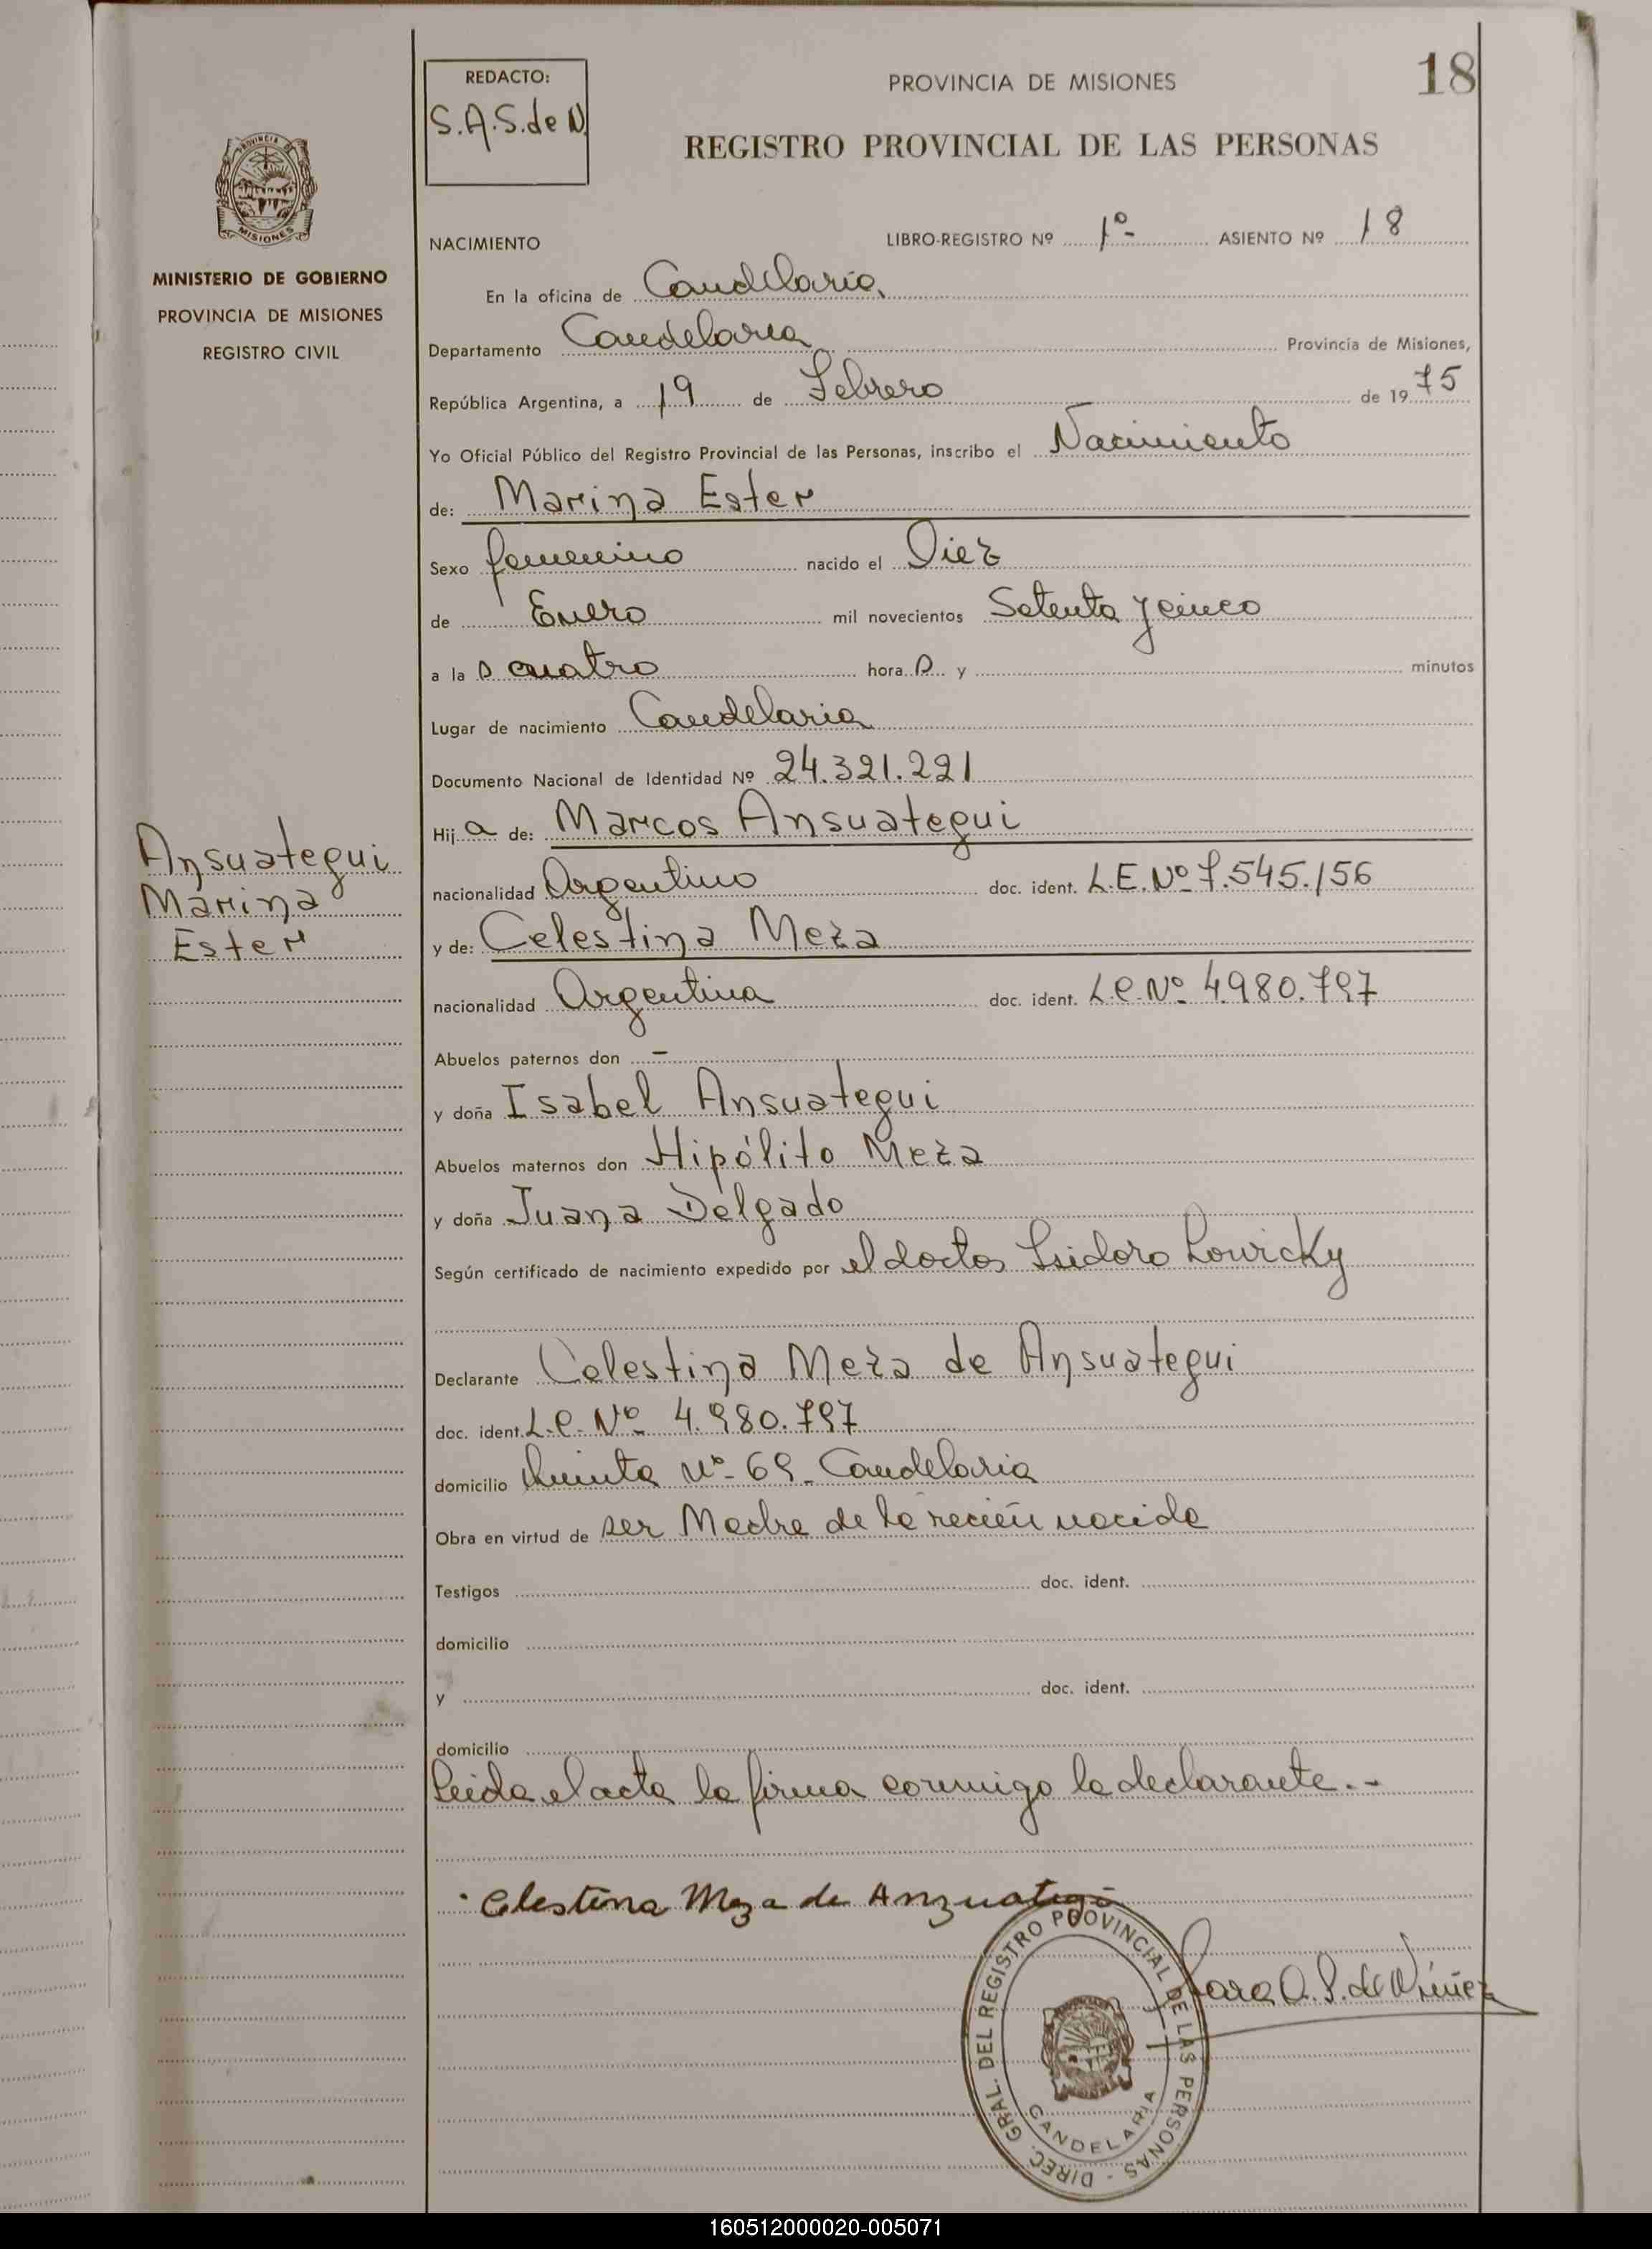 REDACTO:
S.A.S.de N.
PROVINCIA DE MISIONES
18
REGISTRO PROVINCIAL DE LAS PERSONAS
PROVINCIA DE
MISIONES
MINISTERIO DE GOBIERNO
PROVINCIA DE MISIONES
REGISTRO CIVIL
NACIMIENTO
LIBRO-REGISTRO Nº 1º- ASIENTO Nº 18
En la oficina de Candelaria,
Departamento Candelaria Provincia de Misiones,
República Argentina, a 19 de Febrero de 1975
Yo Oficial Público del Registro Provincial de las Personas, inscribo el Nacimiento
de: Marina Ester
Sexo femenino nacido el Diez
de Enero mil novecientos Setenta y cinco
a la s cuatro hora s y minutos
Lugar de nacimiento Candelaria
Documento Nacional de Identidad Nº 24.321.221
Hij a de: Marcos Ansuategui
Ansuategui
Marina
Ester
nacionalidad Argentino doc. ident. L.E. Nº 7.545.156
y de: Celestina Meza
nacionalidad Argentina doc. ident. L.C. Nº 4.980.797
Abuelos paternos don -
y doña Isabel Ansuategui
Abuelos maternos don Hipólito Meza
y doña Juana Delgado
Según certificado de nacimiento expedido por el doctor Isidoro Lowicky
Declarante Celestina Meza de Ansuategui
doc. ident. L.C. Nº 4.980.797
domicilio Quinta Nº- 69- Candelaria
Obra en virtud de ser Madre de la recién nacida
Testigos doc. ident.
domicilio
y doc. ident.
domicilio
Leida el acta la firma conmigo la declarante.-
Celestina Meza de Anzuategi
Sara A. S. de Núñez
DIREC. GRAL. DEL REGISTRO PROVINCIAL DE LAS PERSONAS -
CANDELARIA
160512000020-005071